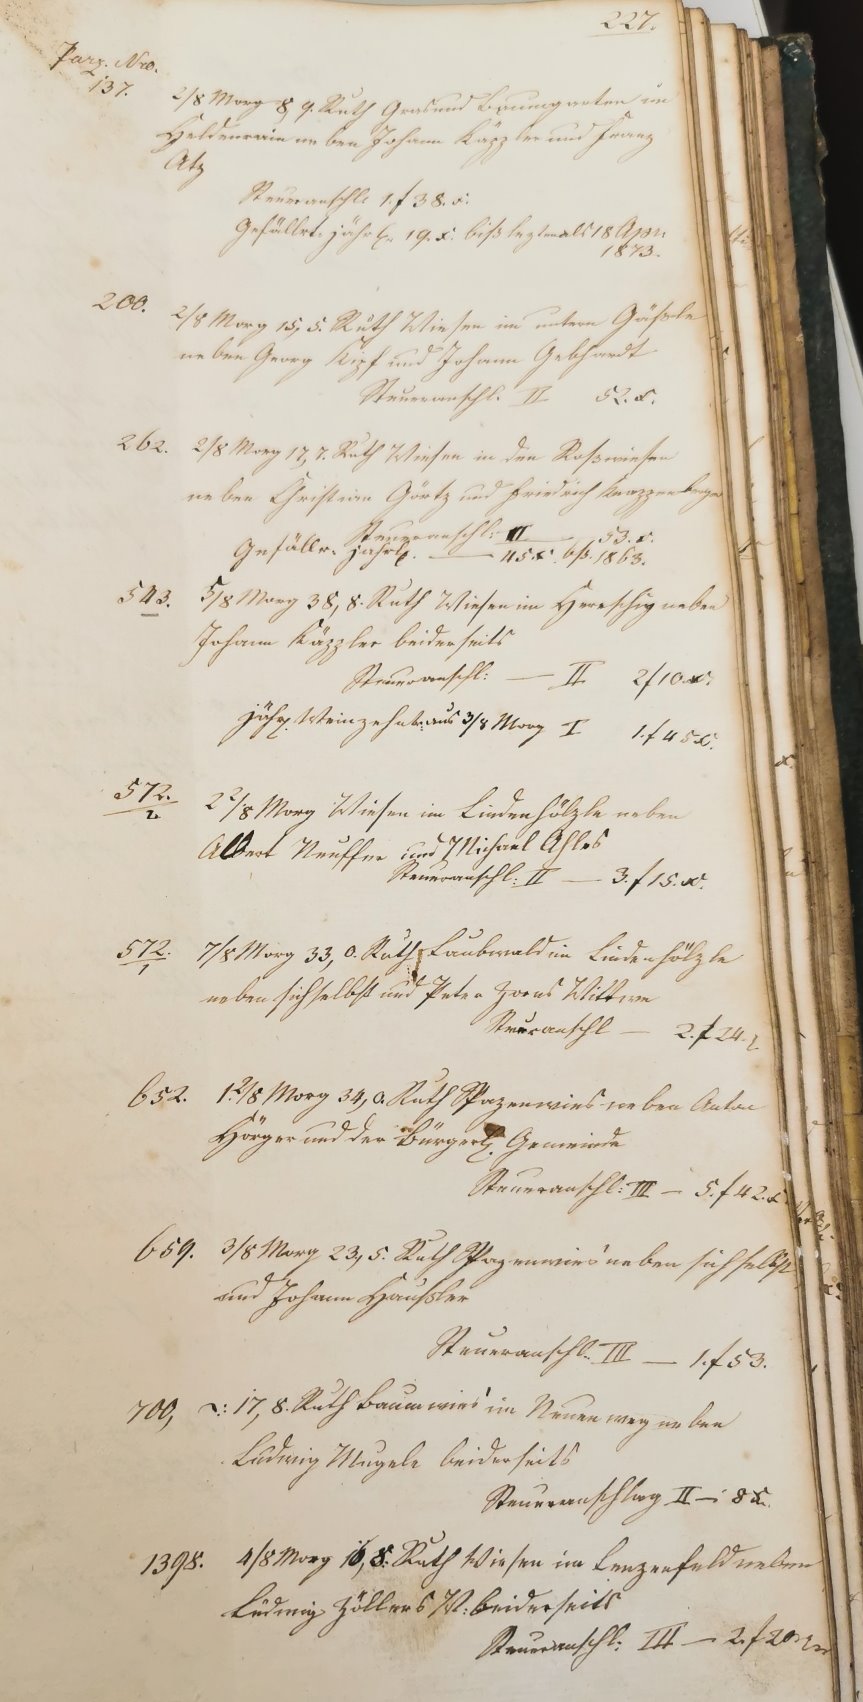 227.
Parz. Nro.
137.
2/8 Morg 8, 9. Ruth Gras und Baumgarten im
Heldenrain neben Johann Käppler und Franz
Atz
Steueranschl: 1.f 38. x.
Gefällrt. jährl. 19. x. biß leztmals 18
1873.
200.
2/8 Morg 15, 5. Ruth Wiesen im untern Gäßle
neben Georg Kipf und Johann Gebhardt
Steueranschl. II 52. x.
262. 2/8 Morg 17, 7. Ruth Wiesen in den Roßwiesen
neben Christian Görtz und Friedrich Knappenberger
Steueranschl: II — 53. x.
Gefällr. jährl. — 45 x. biß. 1863.
543. 5/8 Morg 38, 8. Ruth Wiesen im neben
Johann Käppler beiderseits
Steueranschl: — II 2f 10 x.
jährl. Weinzehnt aus 3/8 Morg I 1.f 45 x.
572.
2 2 2/8 Morg Wiesen im Lindenhölzle neben
Albert Neuffer und Michael Ahles
Steueranschl: II — 3.f 15. x.
572.
1 7/8 Morg 33, 0. Ruth Laubwald im Lindenhölzle
neben sich selbst und Peter Horns Wittwe
Steueranschl — 2.f 24.
652. 1 2/8 Morg 34, 0. Ruth Spazenwies neben Anton
Hörger und der bürgerl. Gemeinde
Steueranschl: III — 5.f 42. x.
659. 3/8 Morg 23, 5. Ruth Spazenwies neben sich selbst
und Johann Haußler
Steueranschl. III — 1.f 53.
700, 17, 8. Ruth Baumwies im Neuen weg neben
Ludwig Mugele beiderseits
Steueranschlag II — 8 x.
1398. 4/8 Morg 16, 8. Ruth Wiesen im Lenzenfeld neben
Ludwig Zöllers W. beiderseits
Steueranschl: III — 2.f 20